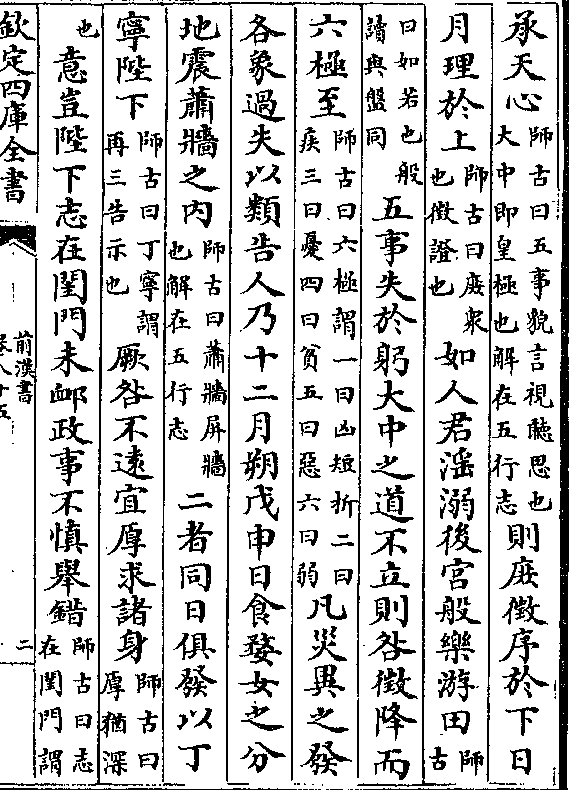 承天心師古曰五事貌言視聽思也大中即皇極也解在五行志則庶徵序於下日
月理於上師古曰庶衆也徵證也如人君淫溺後宮般樂游田師古
曰如若也般讀與盤同五事失於躬大中之道不立則咎徵降而
六極至師古曰六極謂一曰凶短折二曰疾三曰憂四曰貧五曰惡六曰弱凡災異之發
各象過失以類告人乃十二月朔戊申日食婺女之分
地震蕭牆之内師古曰蕭牆屏牆也解在五行志二者同日俱發以丁
寧陛下師古曰丁寧謂再三告示也厥咎不遠宜厚求諸身師古曰厚猶深
也意豈陛下志在閨門未䘏政事不慎舉錯師古曰志在閨門謂
欽定四庫全書
前漢書
卷八十五
二